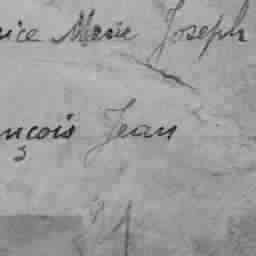 rice Marie Joseph
nçois Jean